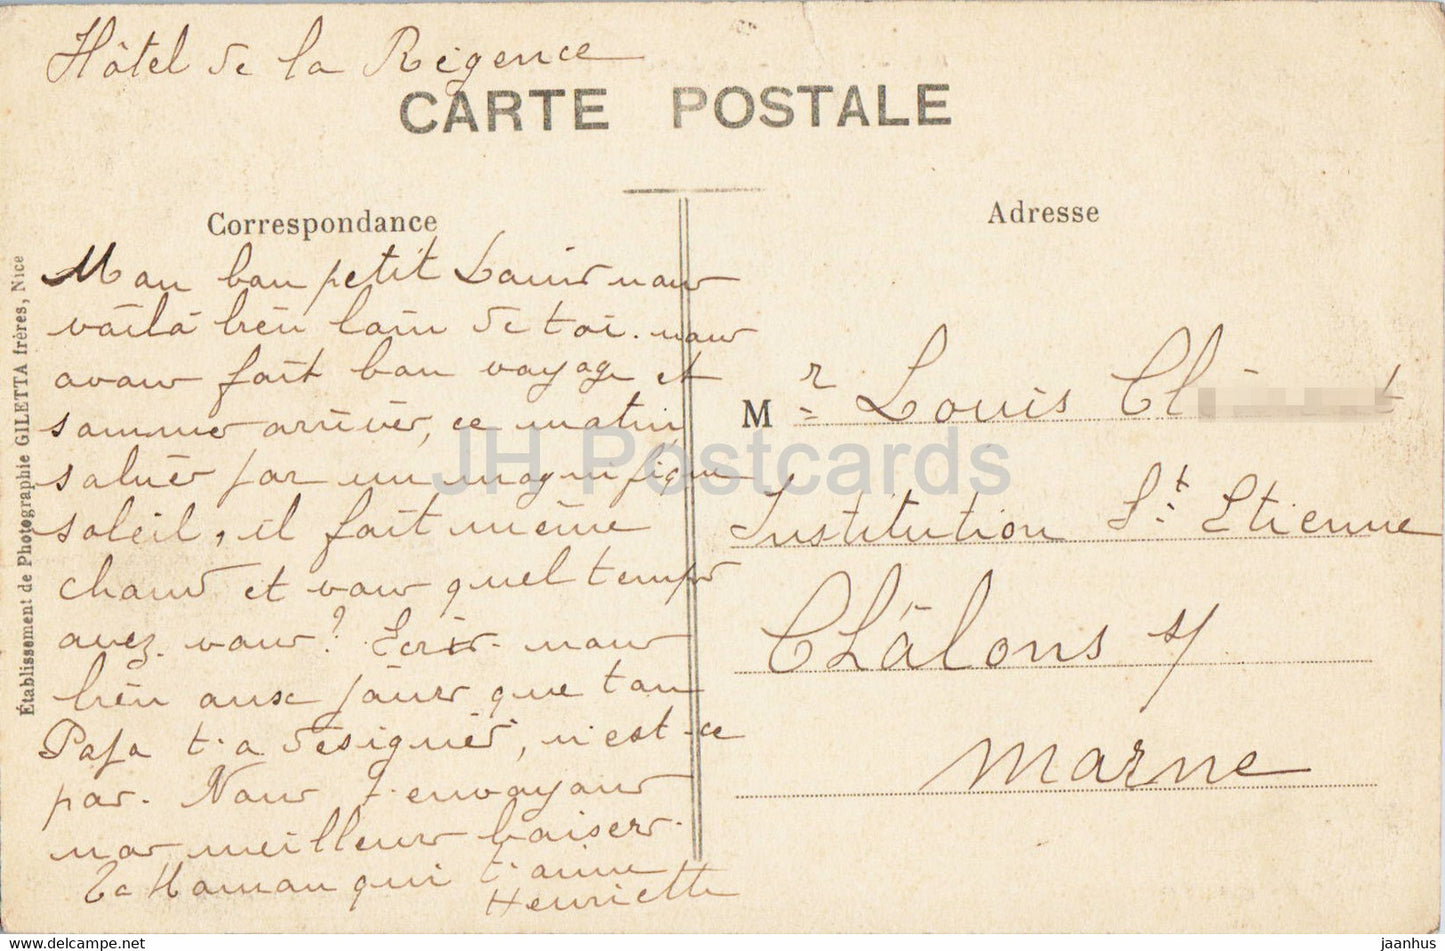 Hôtel de la Régence
CARTE POSTALE
Correspondance
Adresse
Mon bon petit Louis nous
voilà bien loin de toi. nous
avons fait bon voyage et
sommes arrivés, ce matin
salués par un magnifique
soleil, il fait même
chaud et vous quel temps
avez vous? Ecris. nous
bien aux jours que ton
Papa t'a désignés, n'est-ce
pas. Nous t'envoyons
nos meilleurs baisers.
Ta Maman qui t'aime
Henriette
Mr Louis Cl
Institution St Etienne
Châlons s/
Marne
Établissement de Photographie GILETTA frères, Nice
JH Postcards
www.hippostcard.com
jaanhus